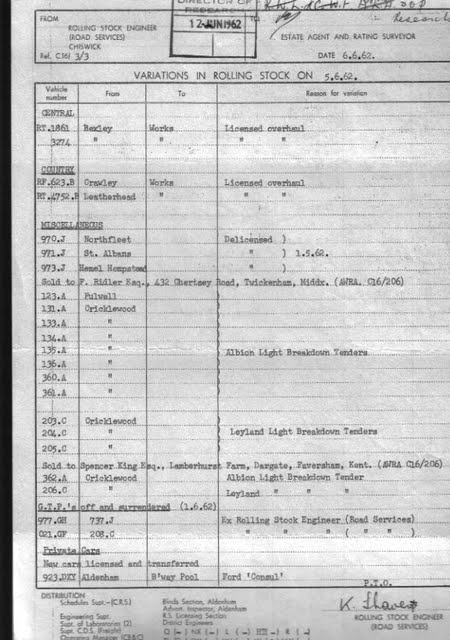 DIRECTOR OF
RESEARCH
12 JUN 1962
Research
FROM
ROLLING STOCK ENGINEER
(ROAD SERVICES)
CHISWICK
Ref. C16/ 3/3
TO
ESTATE AGENT AND RATING SURVEYOR
DATE 6.6.62.
VARIATIONS IN ROLLING STOCK ON 5.6.62.
Vehicle number From To Reason for variation
CENTRAL
RT.1861 Bexley Works Licensed overhaul
3274 " " " "
COUNTRY
RF.623.B Crawley Works Licensed overhaul
RT.4752.B Leatherhead " " "
MISCELLANEOUS
970.J Northfleet Delicensed )
971.J St. Albans " ) 1.5.62.
973.J Hemel Hempstead " )
Sold to F. Ridler Esq., 432 Chertsey Road, Twickenham, Middx. (AWRA. C16/206)
123.A Fulwell )
131.A Cricklewood )
133.A " )
134.A )
135.A " ) Albion Light Breakdown Tenders
136.A " )
360.A " )
361.A " )
203.C Cricklewood )
204.C " ) Leyland Light Breakdown Tenders
205.C " )
Sold to Spencer King Esq., Lamberhurst Farm, Dargate, Faversham, Kent. (AWRA C16/206)
362.A Cricklewood Albion Light Breakdown Tender
206.C " Leyland " " "
G.T.P.'s off and surrendered (1.6.62)
977.GH 737.J Ex Rolling Stock Engineer (Road Services)
021.GF 208.C " " " " ( " " )
Private Cars
New cars licensed and transferred
923.DXY Aldenham B'way Pool Ford 'Consul'
P.T.O.
DISTRIBUTION
Schedules Supt.-(C.R.S.)
Engineering Supt.
Supt. of Laboratories (2)
Supt. C.D.S. (Freight)
Operating Manager (CB&C)
Blinds Section, Aldenham
Advert. Inspector, Aldenham
R.S. Licensing Section
District Engineers
K. Shave
ROLLING STOCK ENGINEER
(ROAD SERVICES)